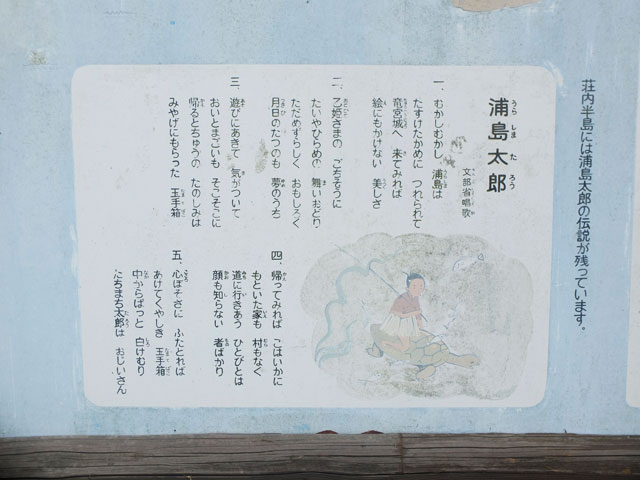 荘内半島には浦島太郎の伝説が残っています。
浦島太郎
文部省唱歌
一、むかしむかし 浦島は
たすけたかめに つれられて
竜宮城へ 来てみれば
絵にもかけない 美しさ
二、乙姫さまの ごちそうに
たいやひらめの 舞いおどり
ただめずらしく おもしろく
月日のたつのも 夢のうち
三、遊びにあきて 気がついて
おいとまごいも そこそこに
帰るとちゅうの たのしみは
みやげにもらった 玉手箱
四、帰ってみれば こはいかに
もといた家も 村もなく
道に行きあう ひとびとは
顔も知らない 者ばかり
五、心ぼそさに ふたとれば
あけてくやしき 玉手箱
中からぱっと 白けむり
たちまち太郎は おじいさん